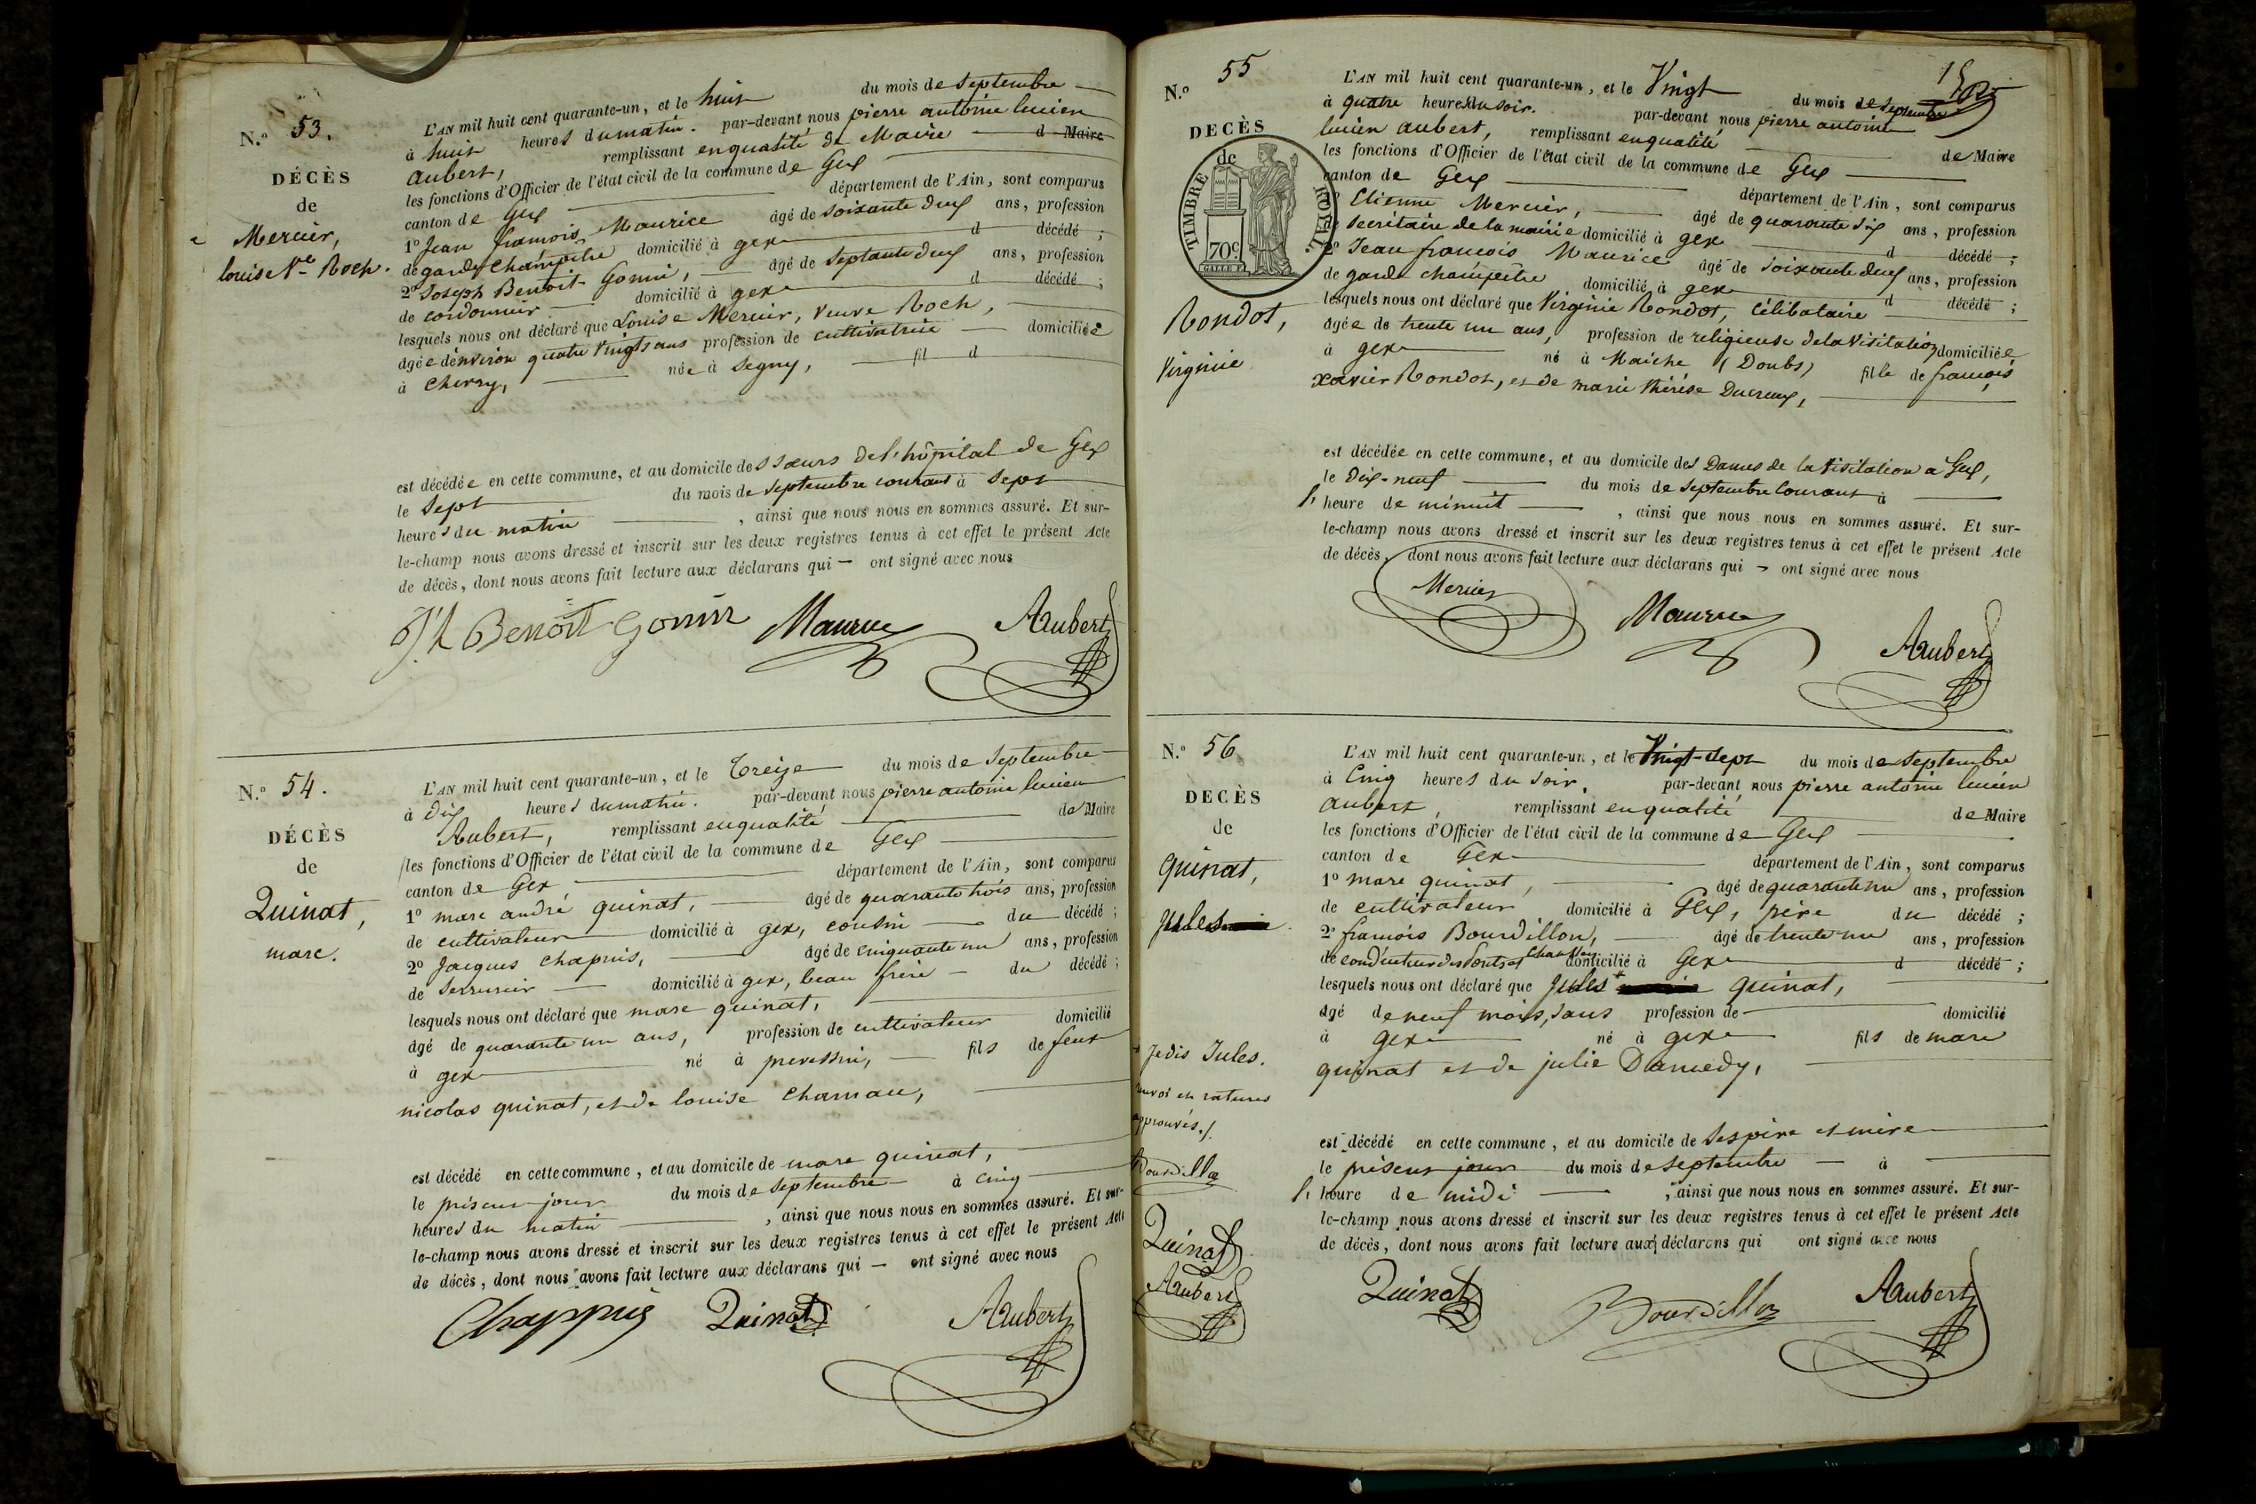 N.º 53.
DÉCÈS
de
Mercier,
louise Ve Roch.
L'AN mil huit cent quarante-un, et le huit du mois de septembre
à huit heures du matin. par-devant nous pierre antoine lucien
aubert, remplissant en qualité de Maire d Maire
les fonctions d'Officier de l'état civil de la commune de Gex
canton de Gex département de l'Ain, sont comparus
1º Jean françois Maurice âgé de soixante deux ans, profession
de garde champêtre domicilié à gex d décédé ;
2º Joseph Benoit Gonin, âgé de septante deux ans, profession
de cordonnier domicilié à gex d décédé ;
lesquels nous ont déclaré que Louise Mercier, veuve Roch,
âgée d'environ quatre vingts ans profession de cultivatrice domiciliée
à Chevry, née à Segny, fil d
est décédée en cette commune, et au domicile des sœurs de l'hôpital de Gex
le sept du mois de septembre courant à sept
heures du matin , ainsi que nous nous en sommes assuré. Et sur-
le-champ nous avons dressé et inscrit sur les deux registres tenus à cet effet le présent Acte
de décès, dont nous avons fait lecture aux déclarans qui ont signé avec nous
Benoit Gonin Maurice Aubert
N.º 54.
DÉCÈS
de
Quinat,
marc.
L'AN mil huit cent quarante-un, et le Treize du mois de septembre
à dix heures du matin. par-devant nous pierre antoine lucien
Aubert, remplissant en qualité de Maire
les fonctions d'Officier de l'état civil de la commune de Gex
canton de Gex, département de l'Ain, sont comparus
1º marc andré quinat, âgé de quarante trois ans, profession
de cultivateur domicilié à gex, cousin du décédé ;
2º Jacques Chapuis, âgé de cinquante un ans, profession
de serrurier domicilié à gex, beau frère du décédé ;
lesquels nous ont déclaré que marc quinat,
âgé de quarante un ans, profession de cultivateur domicilié
à gex né à prevessin, fils de feux
nicolas quinat, et de louise
est décédé en cette commune, et au domicile de marc quinat,
le présent jour du mois de septembre à cinq
heures du matin , ainsi que nous nous en sommes assuré. Et sur-
le-champ nous avons dressé et inscrit sur les deux registres tenus à cet effet le présent Acte
de décès, dont nous avons fait lecture aux déclarans qui ont signé avec nous
Chappuis Quinat Aubert
N.º 55
DECÈS
de
TIMBRE ROYAL.
70 c
Rondot,
Virginie
L'AN mil huit cent quarante-un, et le Vingt du mois de septembre
à quatre heures du soir. par-devant nous pierre antoine
lucien aubert, remplissant en qualité de Maire
les fonctions d'Officier de l'état civil de la commune de Gex
canton de Gex département de l'Ain, sont comparus
Etienne Mercier, âgé de quarante six ans, profession
secrétaire de la mairie domicilié à gex d décédé ;
2º Jean françois Maurice âgé de soixante deux ans, profession
de garde champêtre domicilié à gex d décédé ;
lesquels nous ont déclaré que Virginie Rondot, célibataire
âgée de trente un ans, profession de religieuse de la Visitation domiciliée
à gex né à Maiche (Doubs) fille de françois
xavier Rondot, et de marie thérèse Ducreux,
est décédée en cette commune, et au domicile des Dames de la Visitation a Gex,
le dix-neuf du mois de septembre courant à
l' heure de minuit , ainsi que nous nous en sommes assuré. Et sur-
le-champ nous avons dressé et inscrit sur les deux registres tenus à cet effet le présent Acte
de décès, dont nous avons fait lecture aux déclarans qui ont signé avec nous
Mercier Maurice Aubert
N.º 56
DECÈS
de
Quinat,
jules
L'AN mil huit cent quarante-un, et le Vingt-sept du mois de septembre
à Cinq heures du soir. par-devant nous pierre antoine lucien
aubert, remplissant en qualité de Maire
les fonctions d'Officier de l'état civil de la commune de Gex
canton de Gex département de l'Ain, sont comparus
1º marc quinat, âgé de quarante un ans, profession
de cultivateur domicilié à Gex, père du décédé ;
2º françois Bourdillon, âgé de trente un ans, profession
de conducteur des Ponts et Chaussées domicilié à Gex d décédé ;
lesquels nous ont déclaré que jules quinat,
âgé de neuf mois, sans profession de domicilié
à gex né à gex fils de marc
quinat et de julie Damedy,
Je dis Jules.
renvoi et ratures
approuvés./.
Bourdillon
Quinat
Aubert
est décédé en cette commune, et au domicile de ses père et mère
le présent jour du mois de septembre à
l' heure de midi , ainsi que nous nous en sommes assuré. Et sur-
le-champ nous avons dressé et inscrit sur les deux registres tenus à cet effet le présent Acte
de décès, dont nous avons fait lecture aux déclarans qui ont signé avec nous
Quinat Bourdillon Aubert